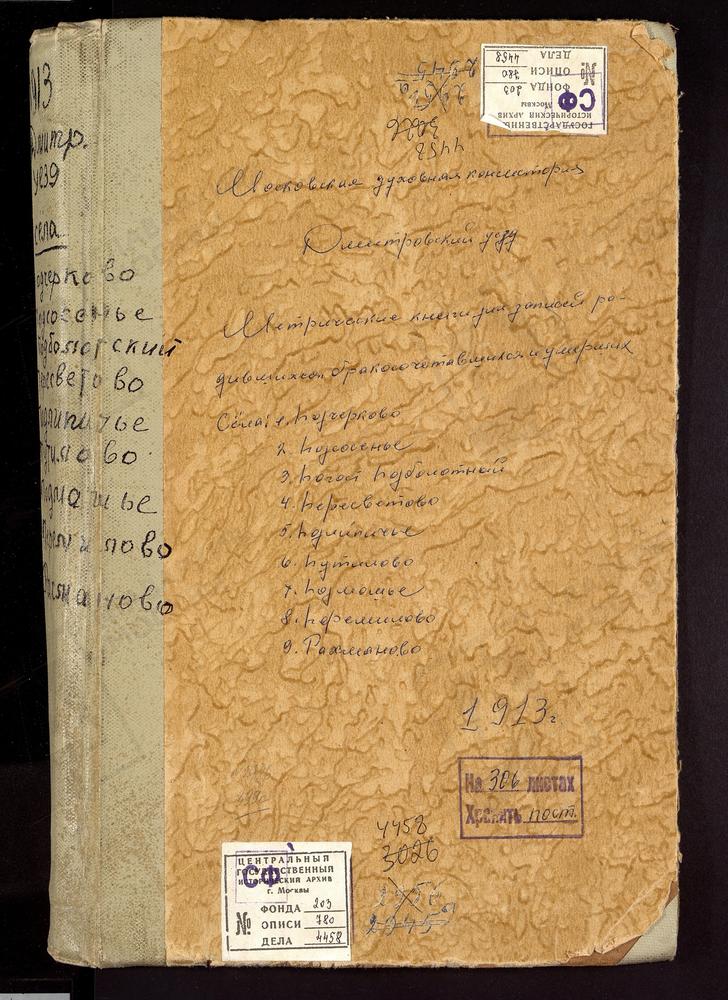 913
Дмитр.
уезд
села
одчерково
одосенье
одболотский
ересветово
одлипичье
утилово
одмошье
Ремилово
Рахманово
ГОСУДАРСТВЕННЫЙ
ИСТОРИЧЕСКИЙ АРХИВ
Москвы
СФ
ФОНДА 203
№ ОПИСИ 780
ДЕЛА 4458
4458
3026
2345
Московская духовная консистория
Дмитровский уезд
Метрические книги для записей ро-
дившихся бракосочетавшихся и умерших
Сёла: 1. Подчерково
2. Подосенье
3. Погост Подболотный
4. Пересветово
5. Подлипичье
6. Путилово
7. Подмошье
8. Перемилово
9. Рахманово
1913г.
На 306 листах
Хранить пост.
4458
3026
2345
ЦЕНТРАЛЬНЫЙ
ГОСУДАРСТВЕННЫЙ
ИСТОРИЧЕСКИЙ АРХИВ
г. Москвы
СФ
ФОНДА 203
№ ОПИСИ 780
ДЕЛА 4458